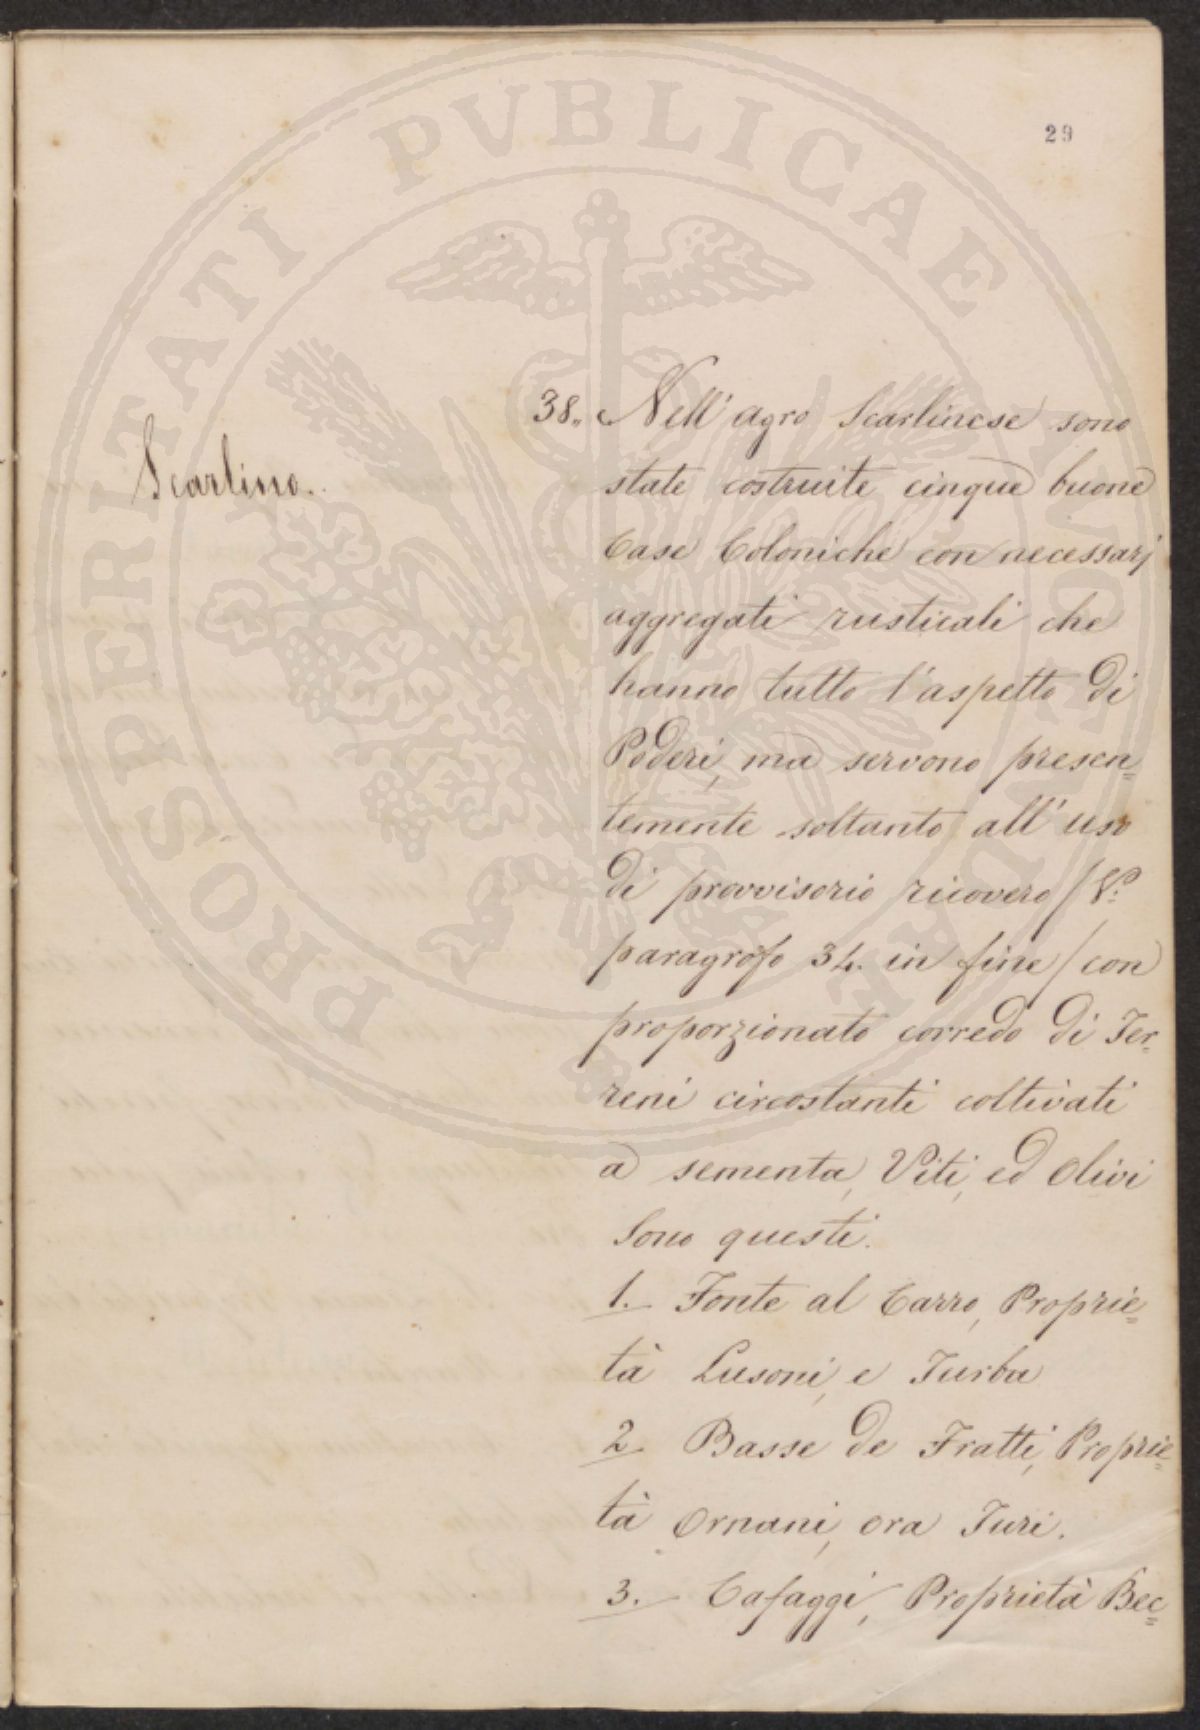 PROSPERITATI PVBLICAE AVGENDAE
29
Scarlino.
38. Nell'agro Scarlinese sono
state costruite cinque buone
Case Coloniche con necessarj
aggregati rusticali che
hanno tutto l'aspetto di
Poderi, ma servono presen=
temente soltanto all'uso
di provvisorio ricovero (V.
paragrafo 34. in fine) con
proporzionato corredo di Ter=
reni circostanti coltivati
a sementa, Viti, ed Olivi
Sono questi.
1. Fonte al Carro, Proprie=
tà Lusoni, e Turba
2. Basse de Fratti, Proprie=
tà Ornani, ora Turi.
3. Cafaggi, Proprietà Bec=